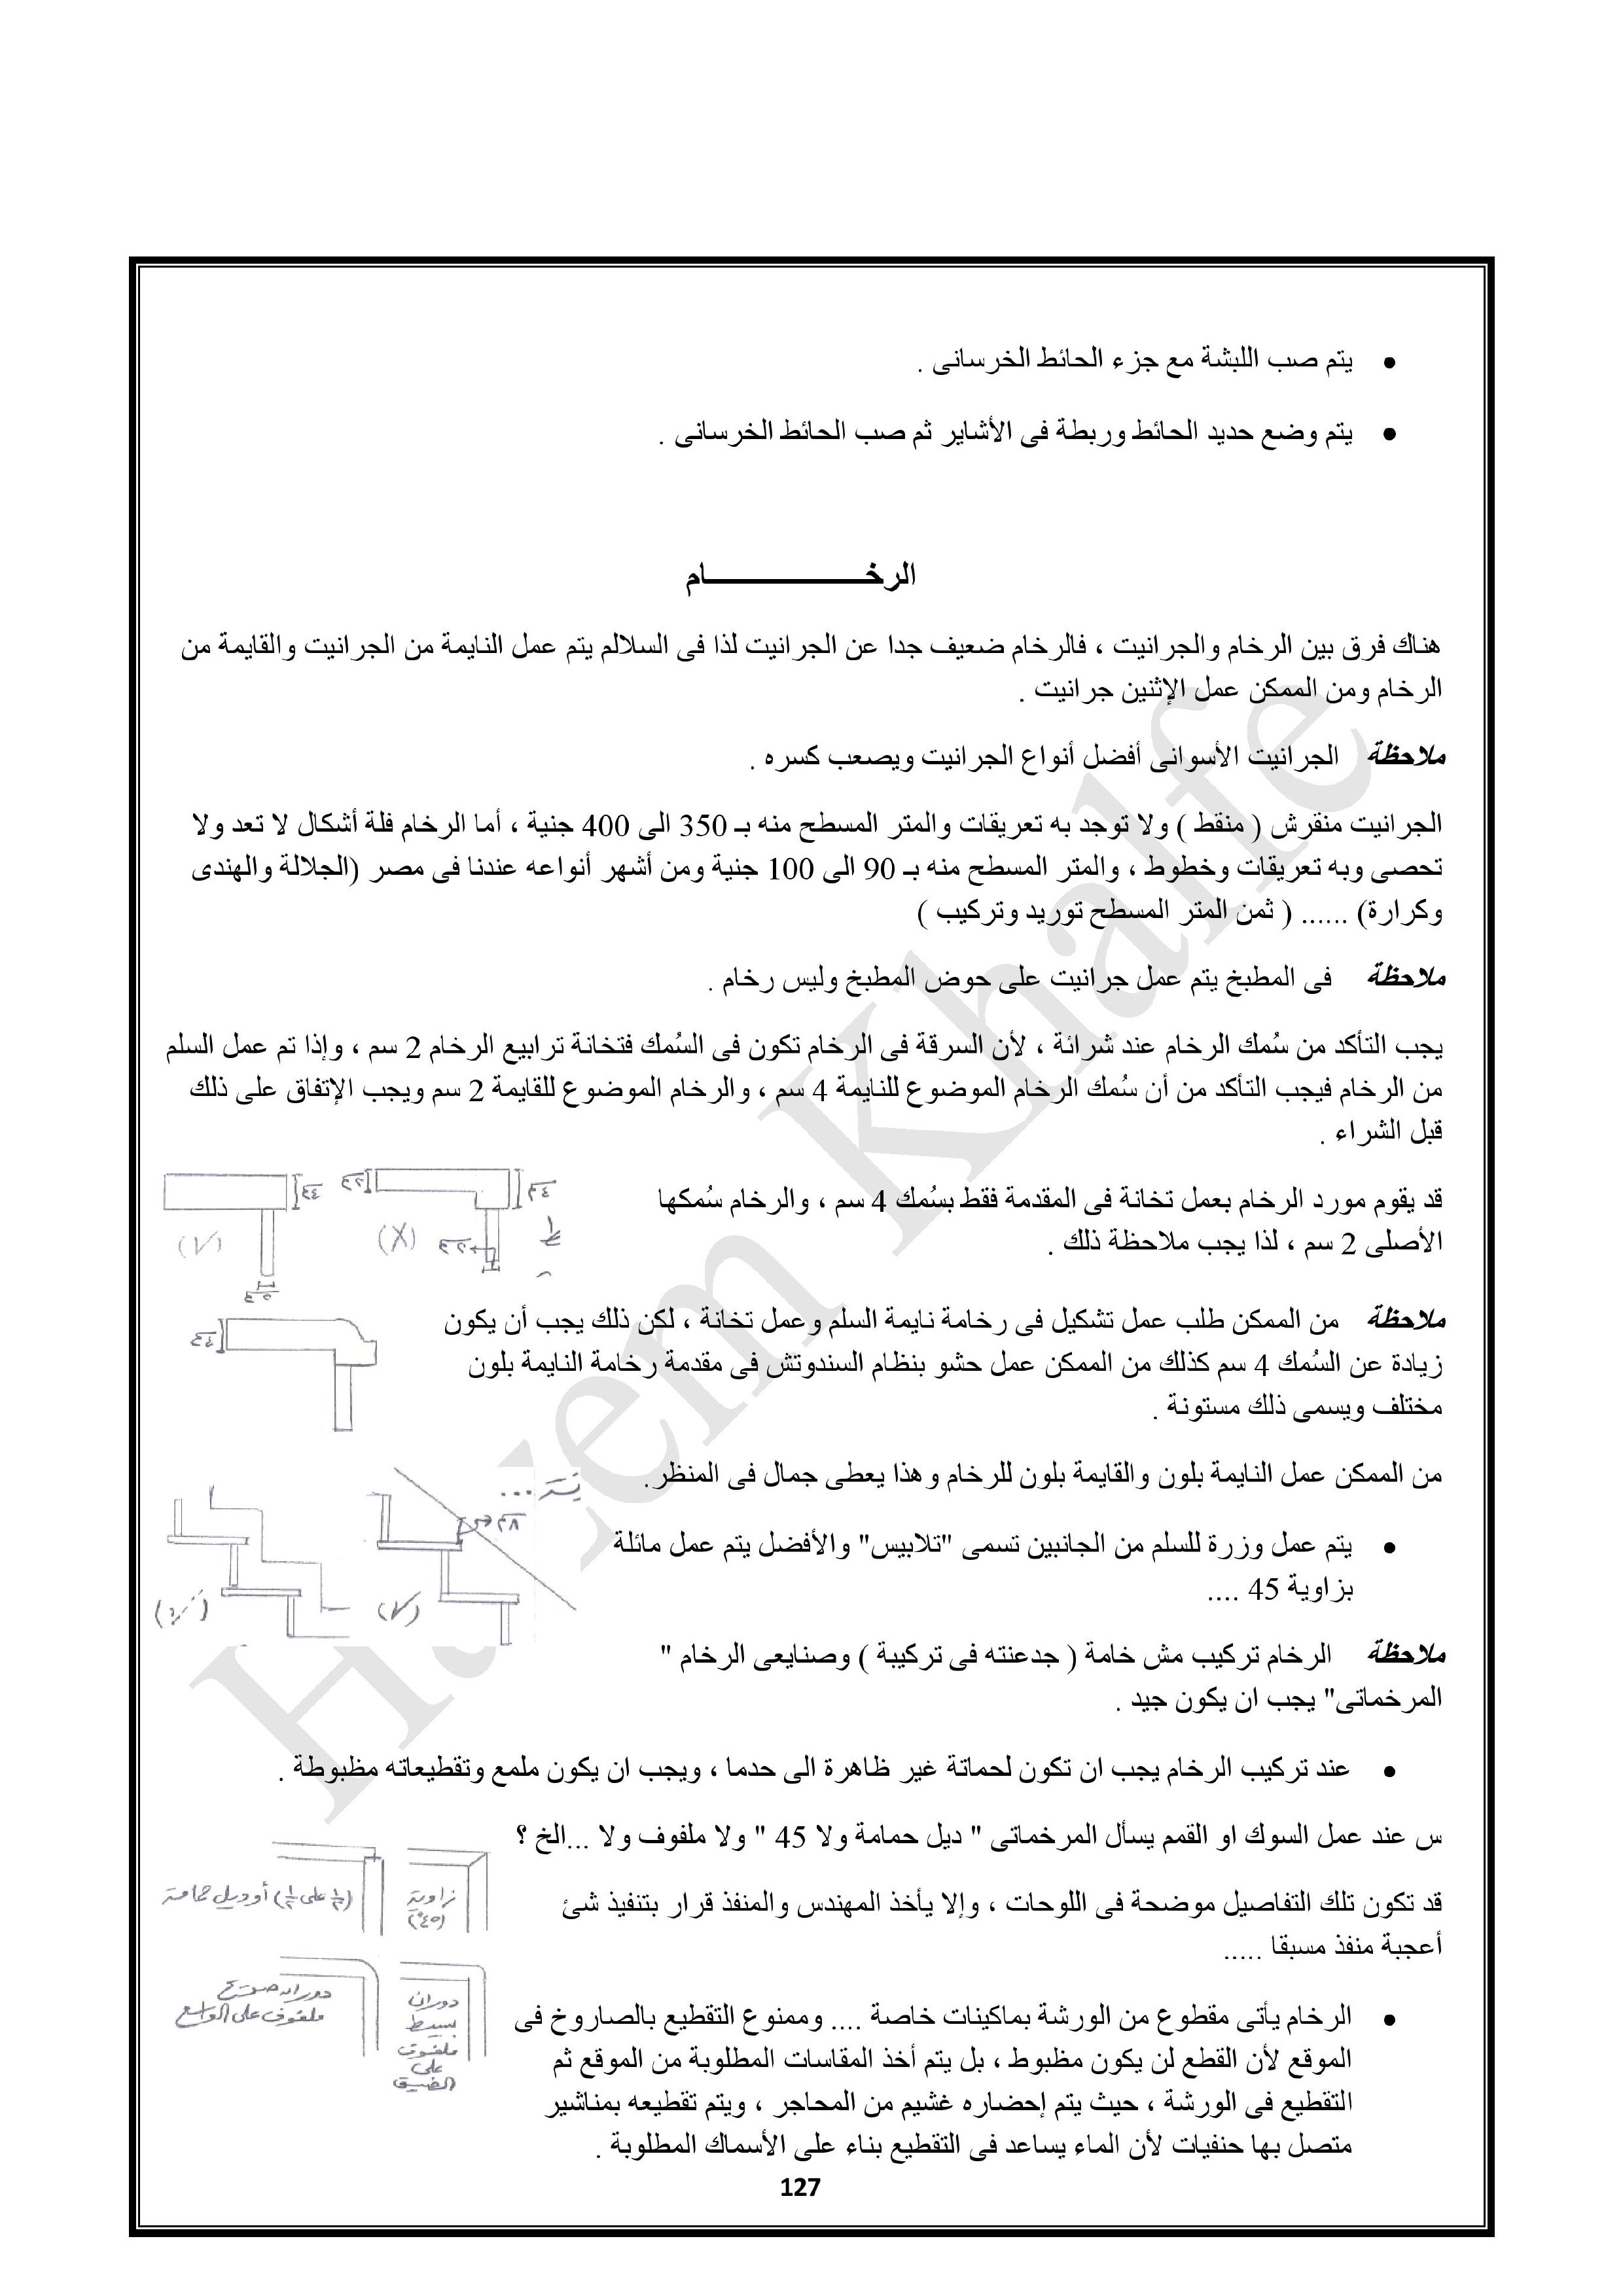 • يتم صب اللبشة مع جزء الحائط الخرسانى .
• يتم وضع حديد الحائط وربطة فى الأشاير ثم صب الحائط الخرسانى .
الرخـــــــــــــــام
هناك فرق بين الرخام والجرانيت ، فالرخام ضعيف جدا عن الجرانيت لذا فى السلالم يتم عمل النايمة من الجرانيت والقايمة من
الرخام ومن الممكن عمل الإثنين جرانيت .
ملاحظة الجرانيت الأسوانى أفضل أنواع الجرانيت ويصعب كسره .
الجرانيت منقرش ( منقط ) ولا توجد به تعريقات والمتر المسطح منه بـ 350 الى 400 جنية ، أما الرخام فلة أشكال لا تعد ولا
تحصى وبه تعريقات وخطوط ، والمتر المسطح منه بـ 90 الى 100 جنية ومن أشهر أنواعه عندنا فى مصر (الجلالة والهندى
وكرارة) ...... ( ثمن المتر المسطح توريد وتركيب )
ملاحظة فى المطبخ يتم عمل جرانيت على حوض المطبخ وليس رخام .
يجب التأكد من سُمك الرخام عند شرائة ، لأن السرقة فى الرخام تكون فى السُمك فتخانة ترابيع الرخام 2 سم ، وإذا تم عمل السلم
من الرخام فيجب التأكد من أن سُمك الرخام الموضوع للنايمة 4 سم ، والرخام الموضوع للقايمة 2 سم ويجب الإتفاق على ذلك
قبل الشراء .
قد يقوم مورد الرخام بعمل تخانة فى المقدمة فقط بسُمك 4 سم ، والرخام سُمكها
الأصلى 2 سم ، لذا يجب ملاحظة ذلك .
ملاحظة من الممكن طلب عمل تشكيل فى رخامة نايمة السلم وعمل تخانة ، لكن ذلك يجب أن يكون
زيادة عن السُمك 4 سم كذلك من الممكن عمل حشو بنظام السندوتش فى مقدمة رخامة النايمة بلون
مختلف ويسمى ذلك مستونة .
من الممكن عمل النايمة بلون والقايمة بلون للرخام وهذا يعطى جمال فى المنظر.
• يتم عمل وزرة للسلم من الجانبين تسمى "تلابيس" والأفضل يتم عمل مائلة
بزاوية 45 ....
ملاحظة الرخام تركيب مش خامة ( جدعنته فى تركيبة ) وصنايعى الرخام "
المرخماتى" يجب ان يكون جيد .
• عند تركيب الرخام يجب ان تكون لحماتة غير ظاهرة الى حدما ، ويجب ان يكون ملمع وتقطيعاته مظبوطة .
س عند عمل السوك او القمم يسأل المرخماتى " ديل حمامة ولا 45 " ولا ملفوف ولا ...الخ ؟
زاوية
(45°)
(½ على ½) أو ديل حمامة
قد تكون تلك التفاصيل موضحة فى اللوحات ، وإلا يأخذ المهندس والمنفذ قرار بتنفيذ شئ
أعجبة منفذ مسبقا .....
دوران
بسيط
ملفوف
على
الضيق
ملفوف على الواسع
• الرخام يأتى مقطوع من الورشة بماكينات خاصة .... وممنوع التقطيع بالصاروخ فى
الموقع لأن القطع لن يكون مظبوط ، بل يتم أخذ المقاسات المطلوبة من الموقع ثم
التقطيع فى الورشة ، حيث يتم إحضاره غشيم من المحاجر ، ويتم تقطيعه بمناشير
متصل بها حنفيات لأن الماء يساعد فى التقطيع بناء على الأسماك المطلوبة .
127